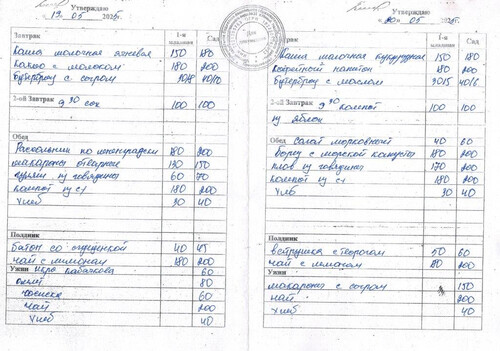 Утверждаю
19. 05 2025г.
1-я младшая Сад
Завтрак
Каша молочная ячневая 150 180
Какао с молоком 180 200
Бутерброд с сыром 40/10
2-ой Завтрак 9 30 сок 100 100
Обед
Рассольник по ленинградски 180 200
макароны отварные 130 150
гуляш из говядины 60 70
компот из с/ф 180 200
Хлеб 30 40
Полдник
батон со сгущенкой 40 45
чай с лимоном 180 200
Ужин икра кабачковая 60
омлет 80
сосиска 60
чай 200
Хлеб 40
Утверждаю
«20» 05 2025г.
1-я младшая Сад
Завтрак
Каша молочная кукурузная 150 180
Кофейный напиток 180 200
Бутерброд с маслом 30/5 40/6
2-ой Завтрак 9 30 компот 100 100
из яблок
Обед Салат морковный 40 60
борщ с морской капустой 180 200
плов из говядины 170 200
компот из с/ф 180 200
Хлеб 30 40
Полдник
ватрушка с творогом 50 60
чай с лимоном 180 200
Ужин
макароны с сыром 150
чай 200
хлеб 40